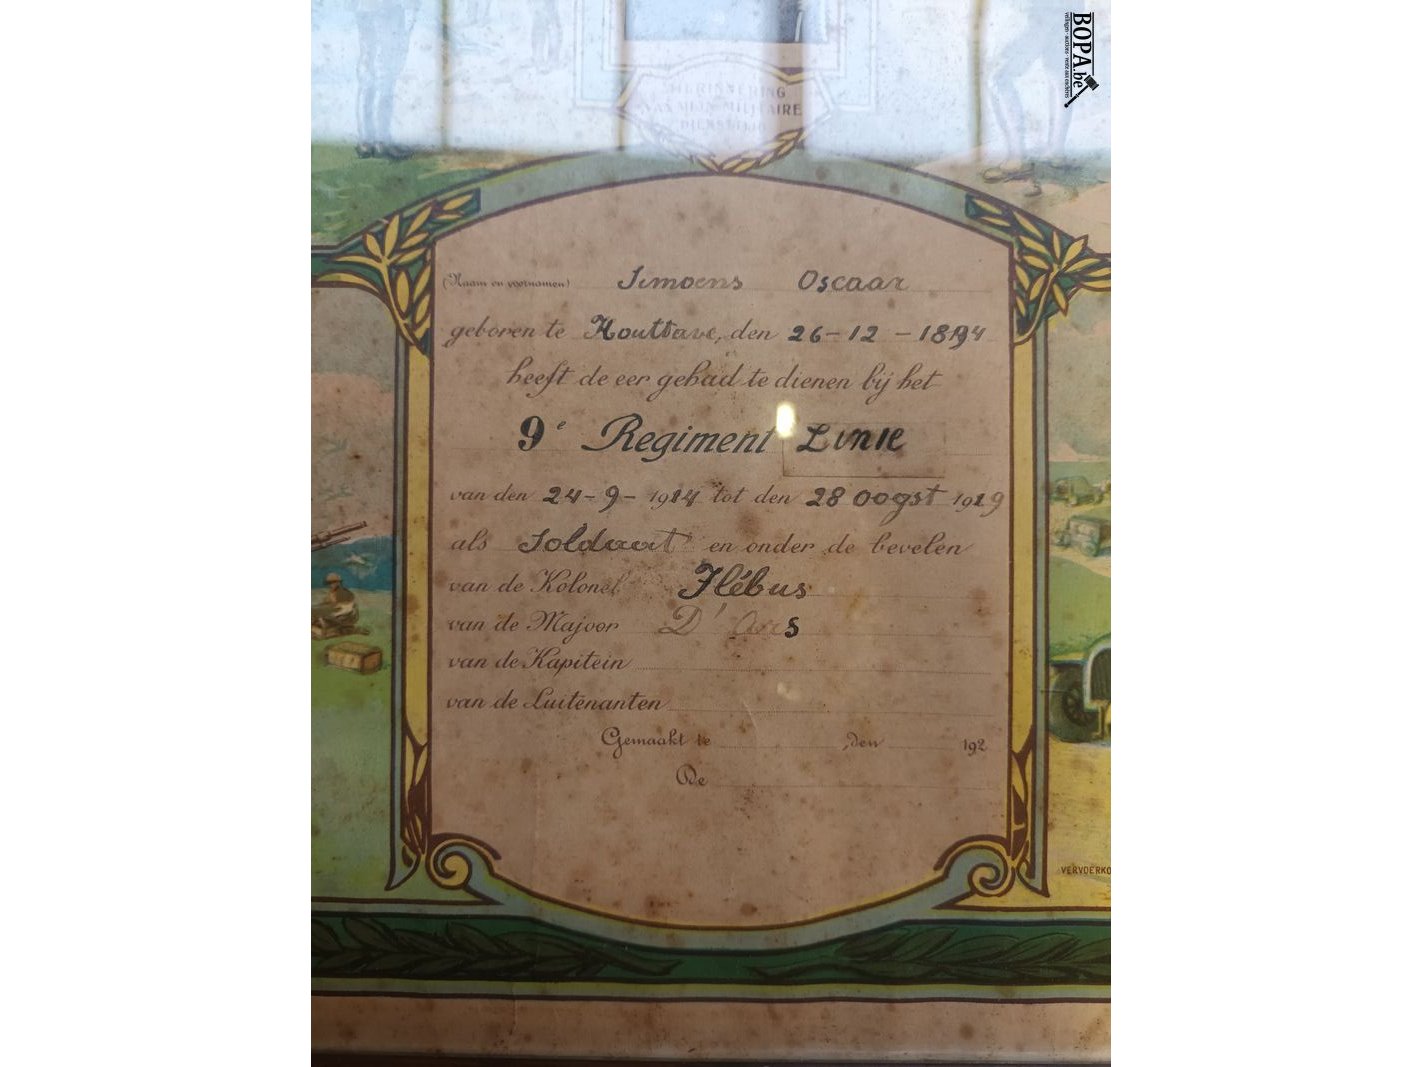 BOPA.be
HERINNERING
VAN MIJN MILITAIRE
DIENSTTIJD
(Naam en voornamen) Simoens Oscaar
geboren te Houttave, den 26-12-1894
heeft de eer gehad te dienen bij het
9e Regiment Linie
van den 24-9-1914 tot den 28 oogst 1919
als Soldaat en onder de bevelen
van de Kolonel Flébus
van de Majoor D'
van de Kapitein
van de Luitenanten
Gemaakt te ,den 192
De
VERVOERKO